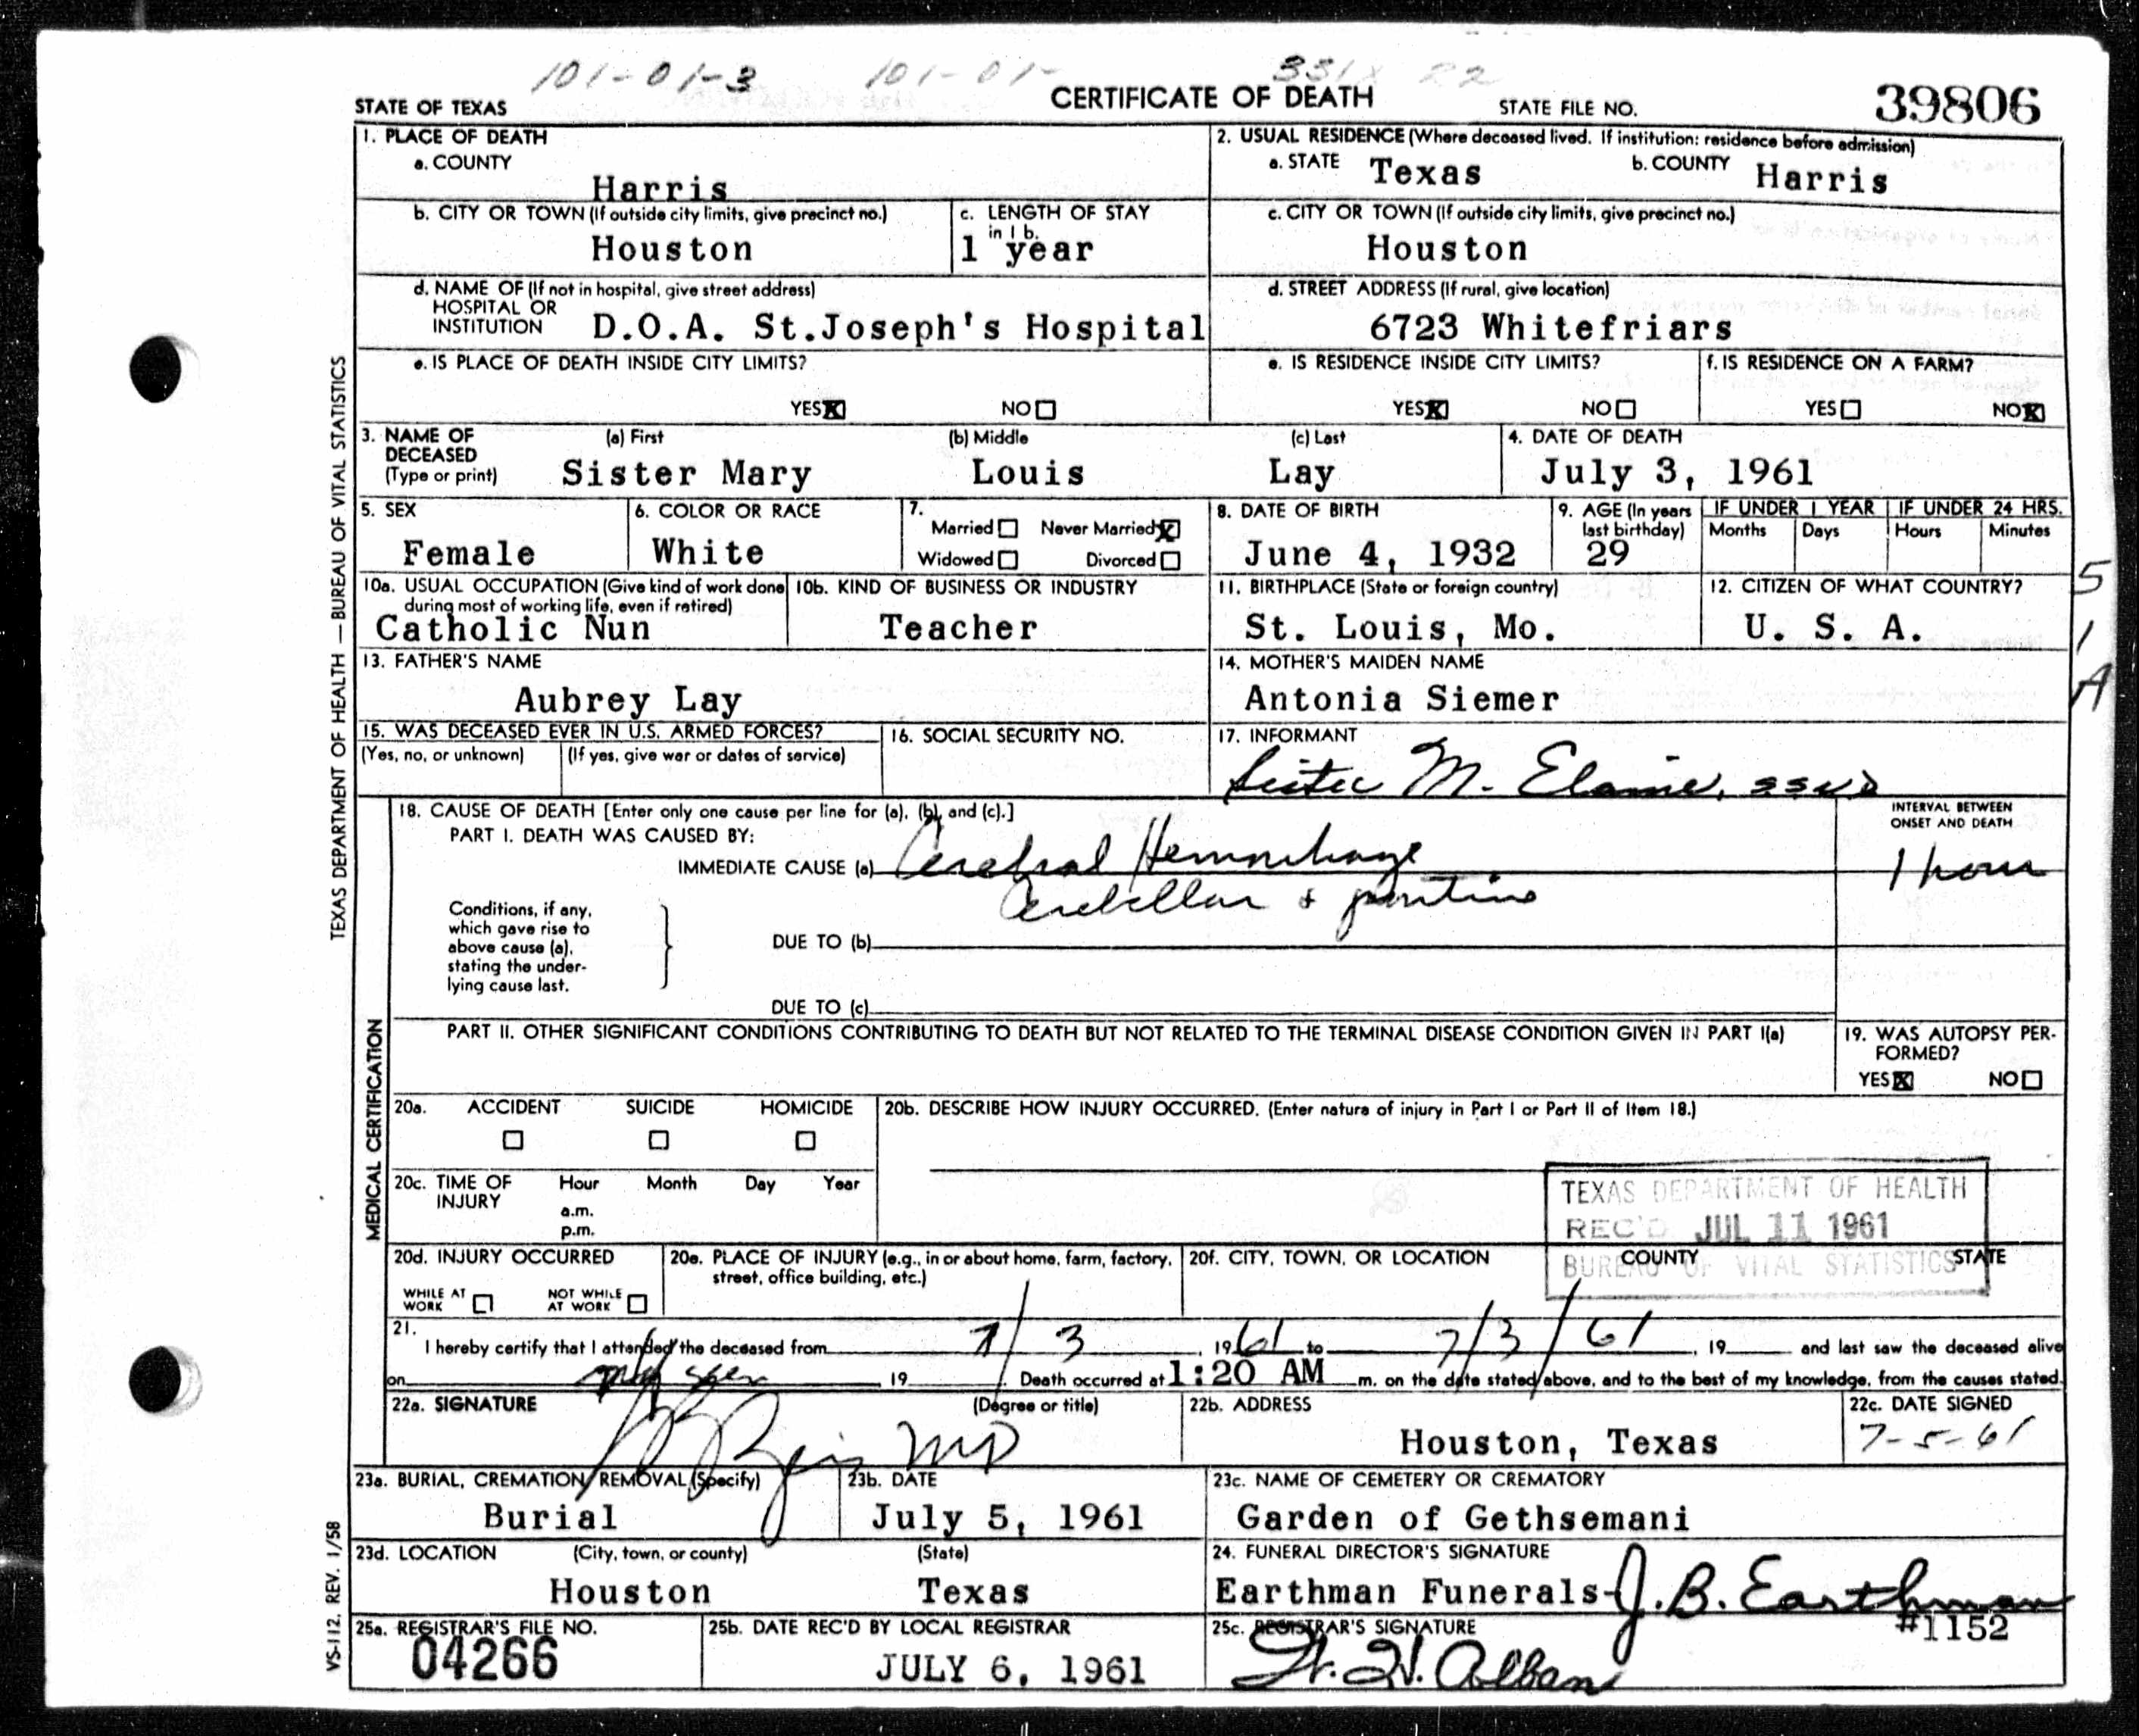 101-01-3 101-01- 331X 22
STATE OF TEXAS CERTIFICATE OF DEATH STATE FILE NO. 39806
1. PLACE OF DEATH
a. COUNTY
Harris
2. USUAL RESIDENCE (Where deceased lived. If institution: residence before admission)
a. STATE Texas b. COUNTY Harris
b. CITY OR TOWN (If outside city limits, give precinct no.)
Houston
c. LENGTH OF STAY
in 1 b.
1 year
c. CITY OR TOWN (If outside city limits, give precinct no.)
Houston
d. NAME OF (If not in hospital, give street address)
HOSPITAL OR
INSTITUTION D.O.A. St.Joseph's Hospital
d. STREET ADDRESS (If rural, give location)
6723 Whitefriars
e. IS PLACE OF DEATH INSIDE CITY LIMITS?
YES X NO
e. IS RESIDENCE INSIDE CITY LIMITS?
YES X NO
f. IS RESIDENCE ON A FARM?
YES NO X
3. NAME OF DECEASED
(Type or print)
(a) First (b) Middle (c) Last
Sister Mary Louis Lay
4. DATE OF DEATH
July 3, 1961
5. SEX
Female
6. COLOR OR RACE
White
7.
Married Never Married X
Widowed Divorced
8. DATE OF BIRTH
June 4, 1932
9. AGE (In years
last birthday)
29
IF UNDER 1 YEAR IF UNDER 24 HRS.
Months Days Hours Minutes
10a. USUAL OCCUPATION (Give kind of work done
during most of working life, even if retired)
Catholic Nun
10b. KIND OF BUSINESS OR INDUSTRY
Teacher
11. BIRTHPLACE (State or foreign country)
St. Louis, Mo.
12. CITIZEN OF WHAT COUNTRY?
U. S. A.
5
1
A
13. FATHER'S NAME
Aubrey Lay
14. MOTHER'S MAIDEN NAME
Antonia Siemer
15. WAS DECEASED EVER IN U.S. ARMED FORCES?
(Yes, no, or unknown) (If yes, give war or dates of service)
16. SOCIAL SECURITY NO.
17. INFORMANT
Sister M. Elaine, SSND
18. CAUSE OF DEATH [Enter only one cause per line for (a), (b), and (c).]
PART I. DEATH WAS CAUSED BY:
IMMEDIATE CAUSE (a) Cerebral Hemorrhage
Cerebellar & pontine
INTERVAL BETWEEN
ONSET AND DEATH
1 hour
Conditions, if any,
which gave rise to
above cause (a),
stating the under-
lying cause last.
DUE TO (b)
DUE TO (c)
PART II. OTHER SIGNIFICANT CONDITIONS CONTRIBUTING TO DEATH BUT NOT RELATED TO THE TERMINAL DISEASE CONDITION GIVEN IN PART I(a)
19. WAS AUTOPSY PER-
FORMED?
YES X NO
20a. ACCIDENT SUICIDE HOMICIDE
20b. DESCRIBE HOW INJURY OCCURRED. (Enter nature of injury in Part I or Part II of Item 18.)
20c. TIME OF
INJURY
Hour Month Day Year
a.m.
p.m.
TEXAS DEPARTMENT OF HEALTH
REC'D JUL 11 1961
BUREAU OF VITAL STATISTICS
20d. INJURY OCCURRED
WHILE AT
WORK
NOT WHILE
AT WORK
20e. PLACE OF INJURY (e.g., in or about home, farm, factory,
street, office building, etc.)
20f. CITY, TOWN, OR LOCATION COUNTY STATE
21.
I hereby certify that I attended the deceased from 7/3, 1961 to 7/3/61, 19 and last saw the deceased alive
on 19 . Death occurred at 1:20 AM m. on the date stated above, and to the best of my knowledge, from the causes stated.
22a. SIGNATURE (Degree or title)
MD
22b. ADDRESS
Houston, Texas
22c. DATE SIGNED
7-5-61
23a. BURIAL, CREMATION, REMOVAL (Specify)
Burial
23b. DATE
July 5, 1961
23c. NAME OF CEMETERY OR CREMATORY
Garden of Gethsemani
23d. LOCATION (City, town, or county) (State)
Houston Texas
24. FUNERAL DIRECTOR'S SIGNATURE
Earthman Funerals-J.B. Earthman
#1152
25a. REGISTRAR'S FILE NO.
04266
25b. DATE REC'D BY LOCAL REGISTRAR
JULY 6, 1961
25c. REGISTRAR'S SIGNATURE
Alban
TEXAS DEPARTMENT OF HEALTH — BUREAU OF VITAL STATISTICS
MEDICAL CERTIFICATION
VS-112. REV. 1/58